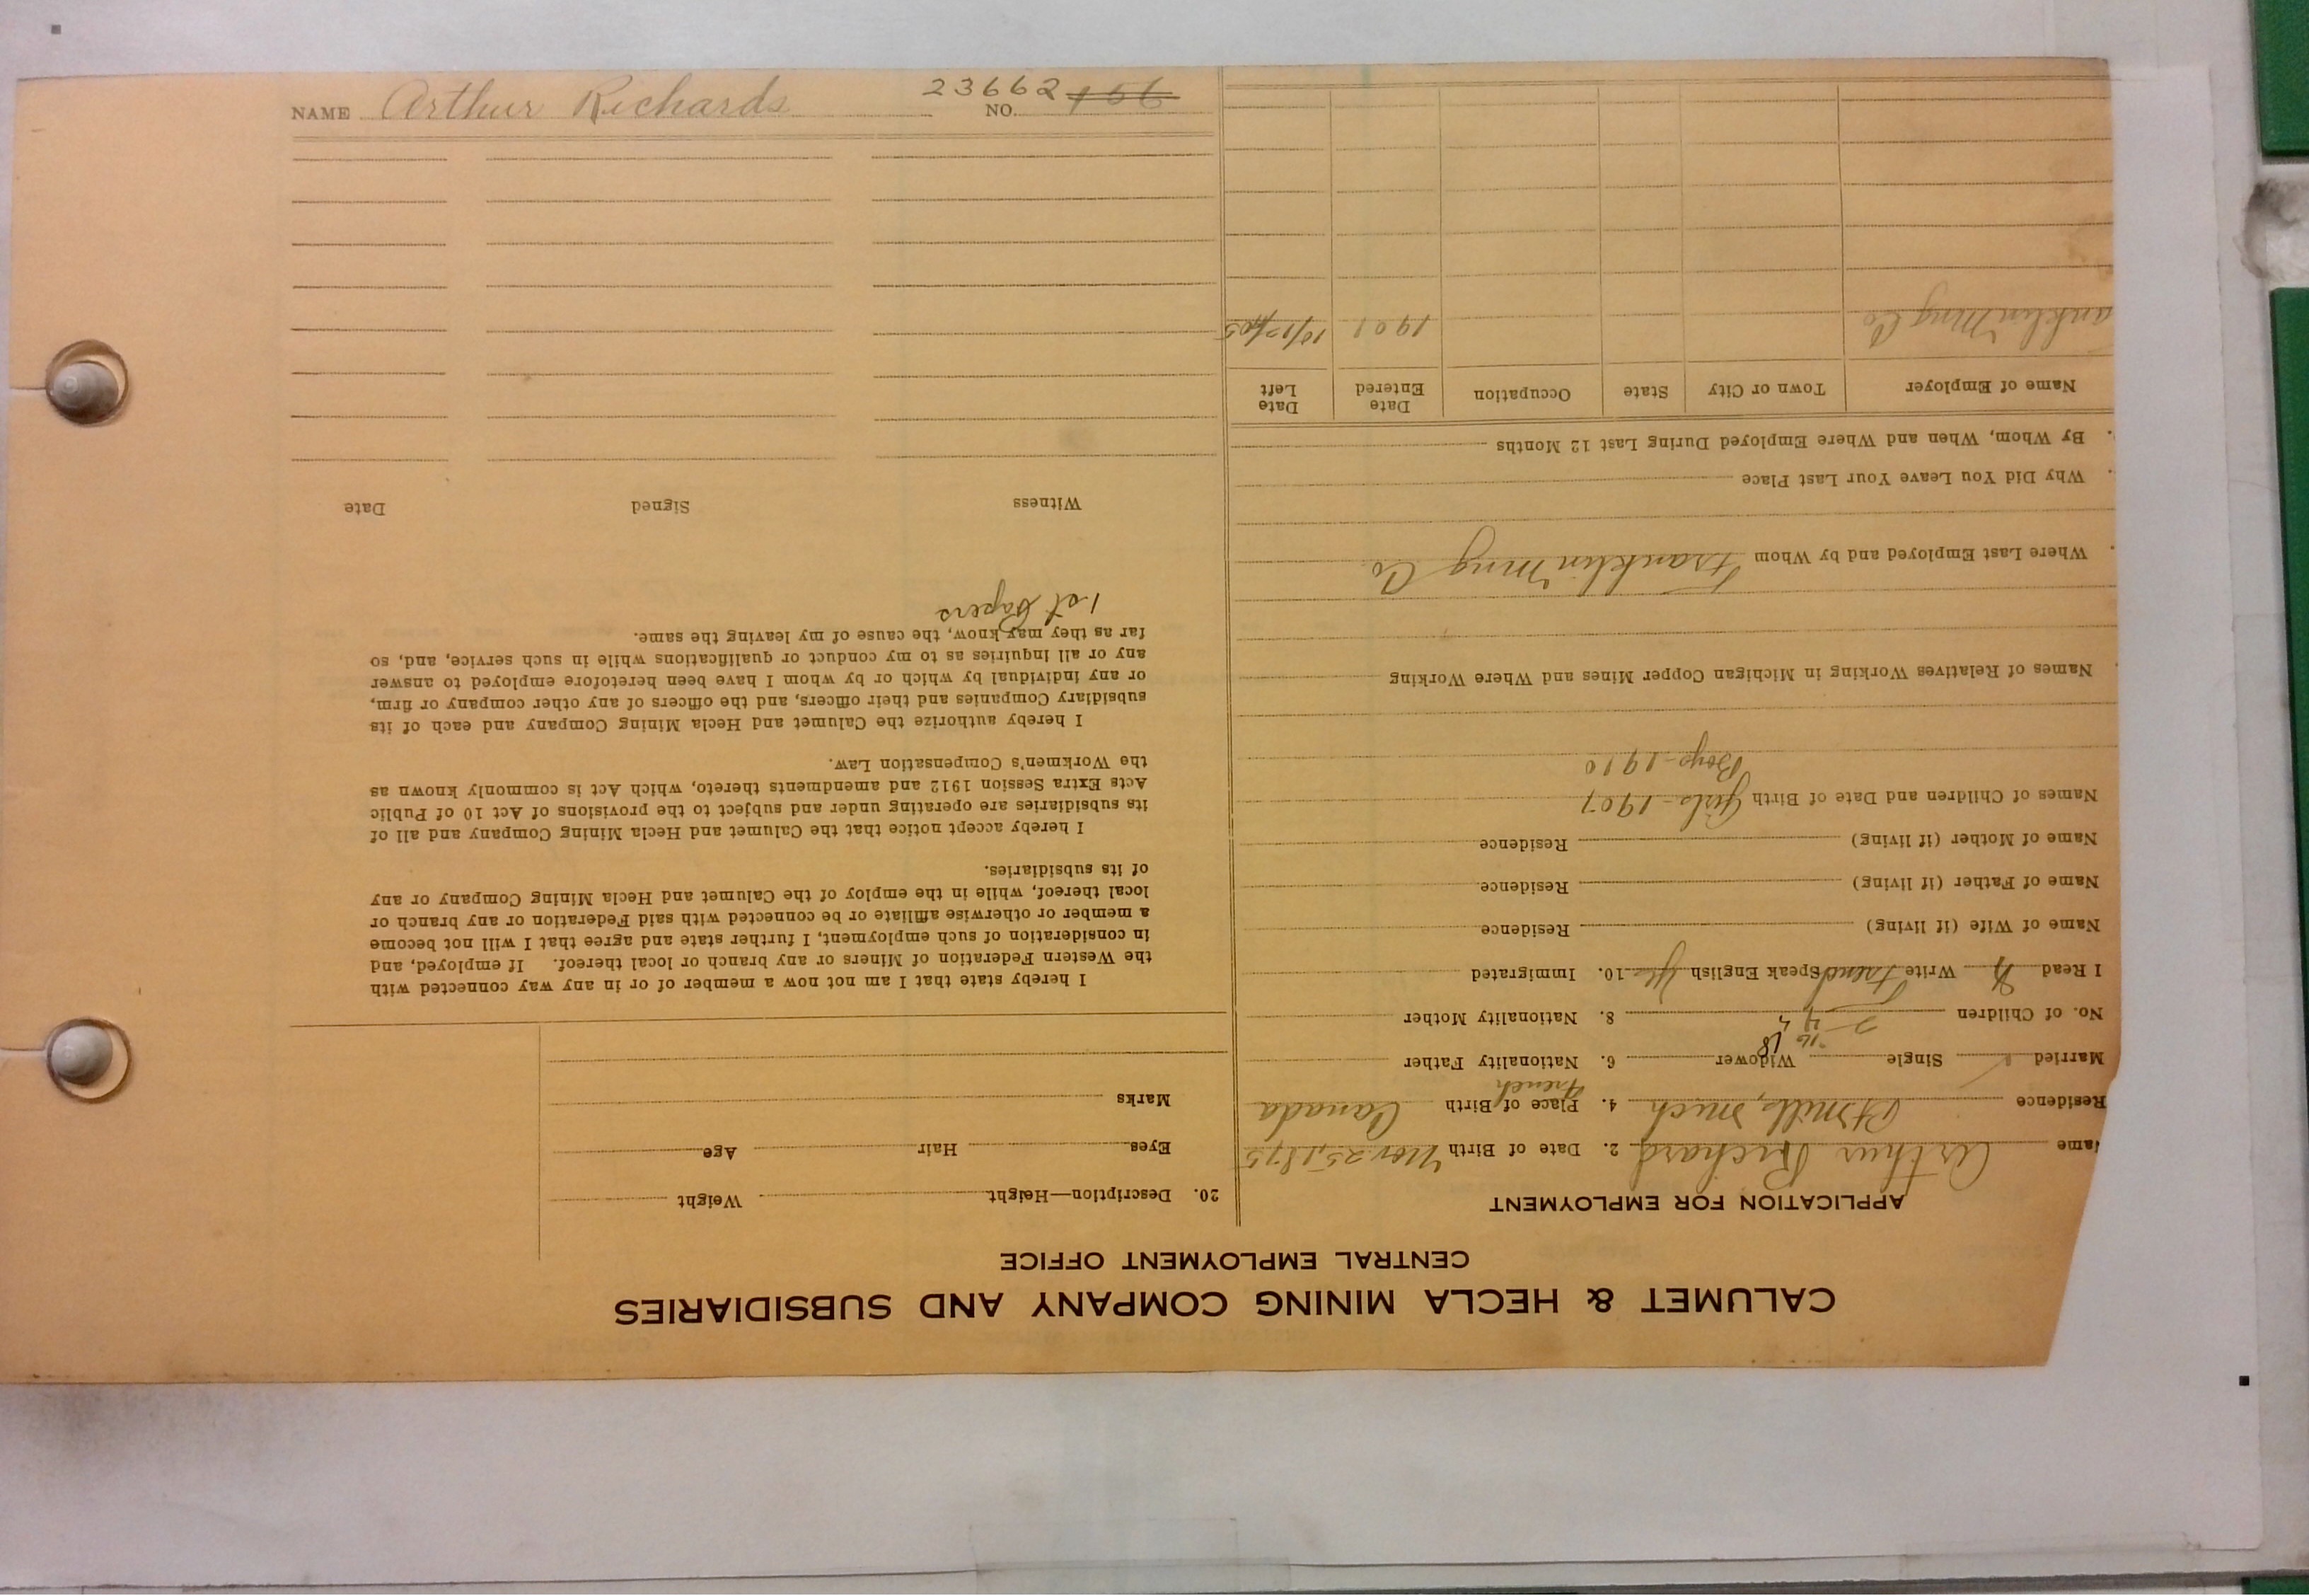 NAME Arthur Richards NO. 23662 156
CALUMET & HECLA MINING COMPANY AND SUBSIDIARIES
CENTRAL EMPLOYMENT OFFICE
APPLICATION FOR EMPLOYMENT
Name Arthur Richard 2. Date of Birth Nov. 25, 1875
Residence Pt Mills, Mich 4. Place of Birth French Canada
Married Single Widower 18 6. Nationality Father
No. of Children 2 4 8. Nationality Mother
I Read Write French Speak English yes 10. Immigrated
Name of Wife (if living) Residence
Name of Father (if living) Residence
Name of Mother (if living) Residence
Names of Children and Date of Birth Girls-1907
Boys-1910
Names of Relatives Working in Michigan Copper Mines and Where Working
Where Last Employed and by Whom Franklin Mng Co
Why Did You Leave Your Last Place
By Whom, When and Where Employed During Last 12 Months
Name of Employer Town or City State Occupation Date Entered Date Left
anklin Mng Co 1901
20. Description—Height Weight
Eyes Hair Age
Marks
I hereby state that I am not now a member of or in any way connected with
the Western Federation of Miners or any branch or local thereof. If employed, and
in consideration of such employment, I further state and agree that I will not become
a member or otherwise affiliate or be connected with said Federation or any branch or
local thereof, while in the employ of the Calumet and Hecla Mining Company or any
of its subsidiaries.
I hereby accept notice that the Calumet and Hecla Mining Company and all of
its subsidiaries are operating under and subject to the provisions of Act 10 of Public
Acts Extra Session 1912 and amendments thereto, which Act is commonly known as
the Workmen's Compensation Law.
I hereby authorize the Calumet and Hecla Mining Company and each of its
subsidiary Companies and their officers, and the officers of any other company or firm,
or any individual by which or by whom I have been heretofore employed to answer
any or all inquiries as to my conduct or qualifications while in such service, and, so
far as they may know, the cause of my leaving the same.
1st Papers
Witness Signed Date